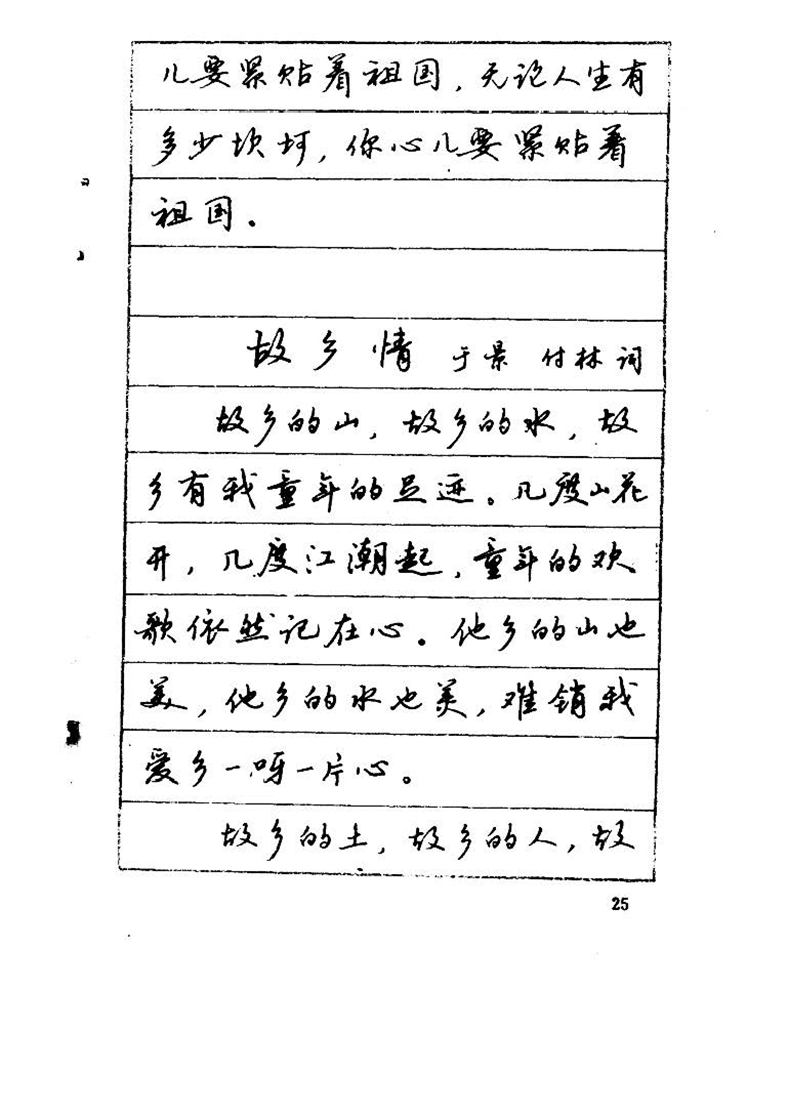 儿要紧贴着祖国，无论人生有
多少坎坷，你心儿要紧贴着
祖国。
故乡情 于景 付林词
故乡的山，故乡的水，故
乡有我童年的足迹。几度山花
开，几度江潮起，童年的欢
歌依然记在心。他乡的山也
美，他乡的水也美，难销我
爱乡一呀一片心。
故乡的土，故乡的人，故
25